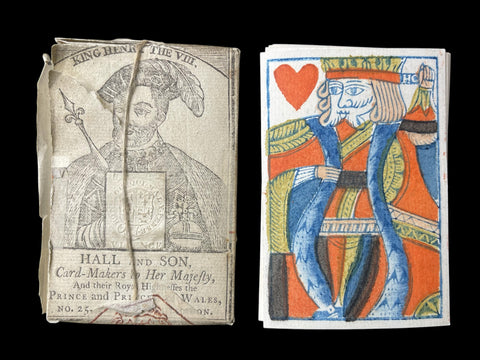 KING HENRY THE VIII.
HALL AND SON,
Card-Makers to Her Majesty,
And their Royal Highnesses the
PRINCE and Princ WALES,
NO. 25. ON.
HC